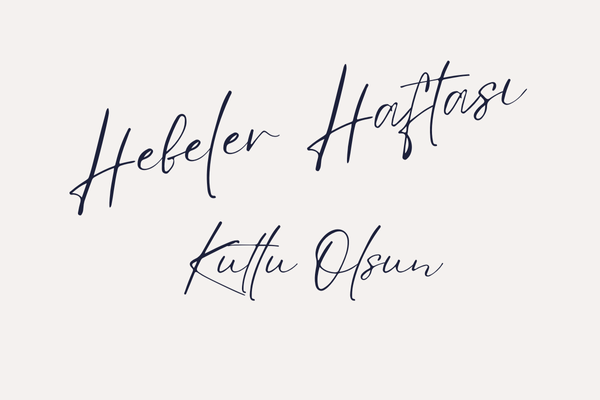 Hebeler Haftası
Kutlu Olsun